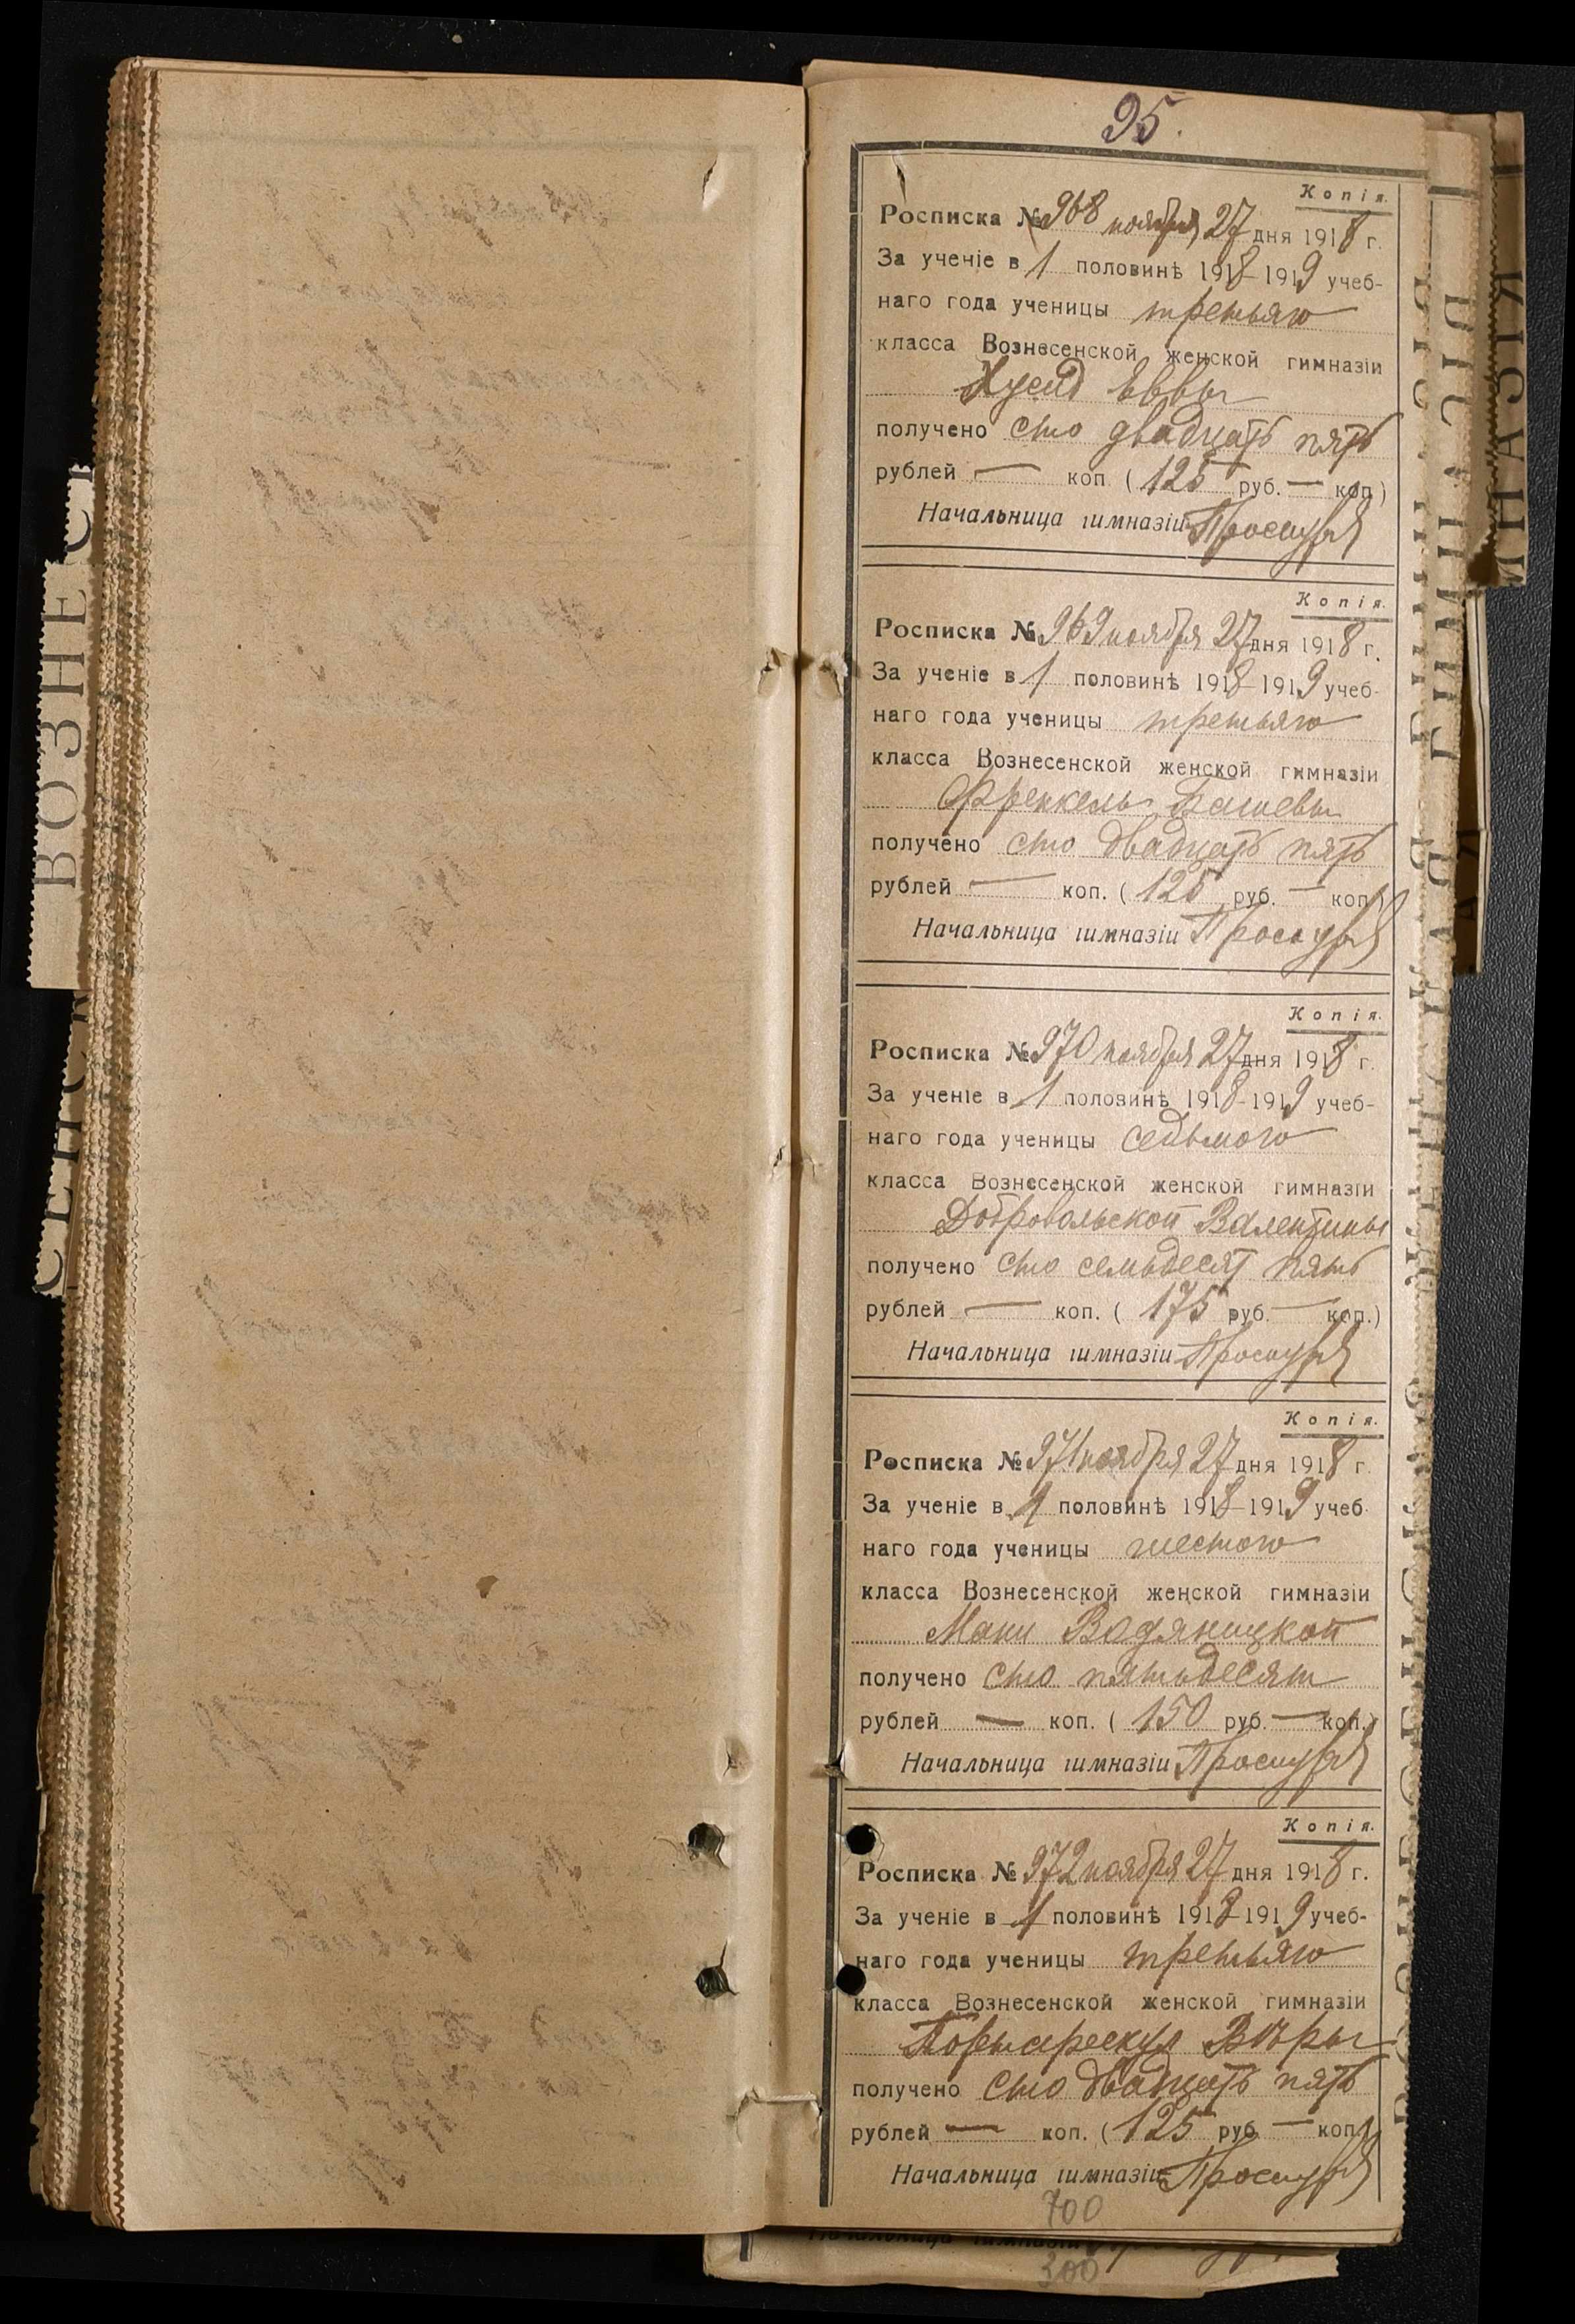 95.
Копія.
Росписка № 968 ноября 27 дня 1918 г.
За ученіе в 1 половинѣ 1918-1919 учеб-
наго года ученицы третьяго
класса Вознесенской женской гимназіи
Хусид Еввы
получено сто двадцать пять
рублей — коп. (125 руб. — коп.)
Начальница гимназіи Проскур
Копія.
Росписка № 969 ноября 27 дня 1918 г.
За ученіе в 1 половинѣ 1918-1919 учеб-
наго года ученицы третьяго
класса Вознесенской женской гимназіи
Френкель Башевы
получено сто двадцать пять
рублей — коп. (125 руб. — коп.)
Начальница гимназіи Проскур
Копія.
Росписка № 970 ноября 27 дня 1918 г.
За ученіе в 1 половинѣ 1918-1919 учеб-
наго года ученицы седьмого
класса Вознесенской женской гимназіи
Добровольской Валентины
получено сто семьдесят пять
рублей — коп. (175 руб. — коп.)
Начальница гимназіи Проскур
Копія.
Росписка № 971 ноября 27 дня 1918 г.
За ученіе в 1 половинѣ 1918-1919 учеб-
наго года ученицы шестого
класса Вознесенской женской гимназіи
Мани Водяницкой
получено сто пятьдесят
рублей — коп. (150 руб. — коп.)
Начальница гимназіи Проскур
Копія.
Росписка № 972 ноября 27 дня 1918 г.
За ученіе в 1 половинѣ 1918-1919 учеб-
наго года ученицы третьяго
класса Вознесенской женской гимназіи
Портарескул Вѣры
получено сто двадцать пять
рублей — коп. (125 руб. — коп.)
Начальница гимназіи Проскур
700
300
ВОЗНЕ